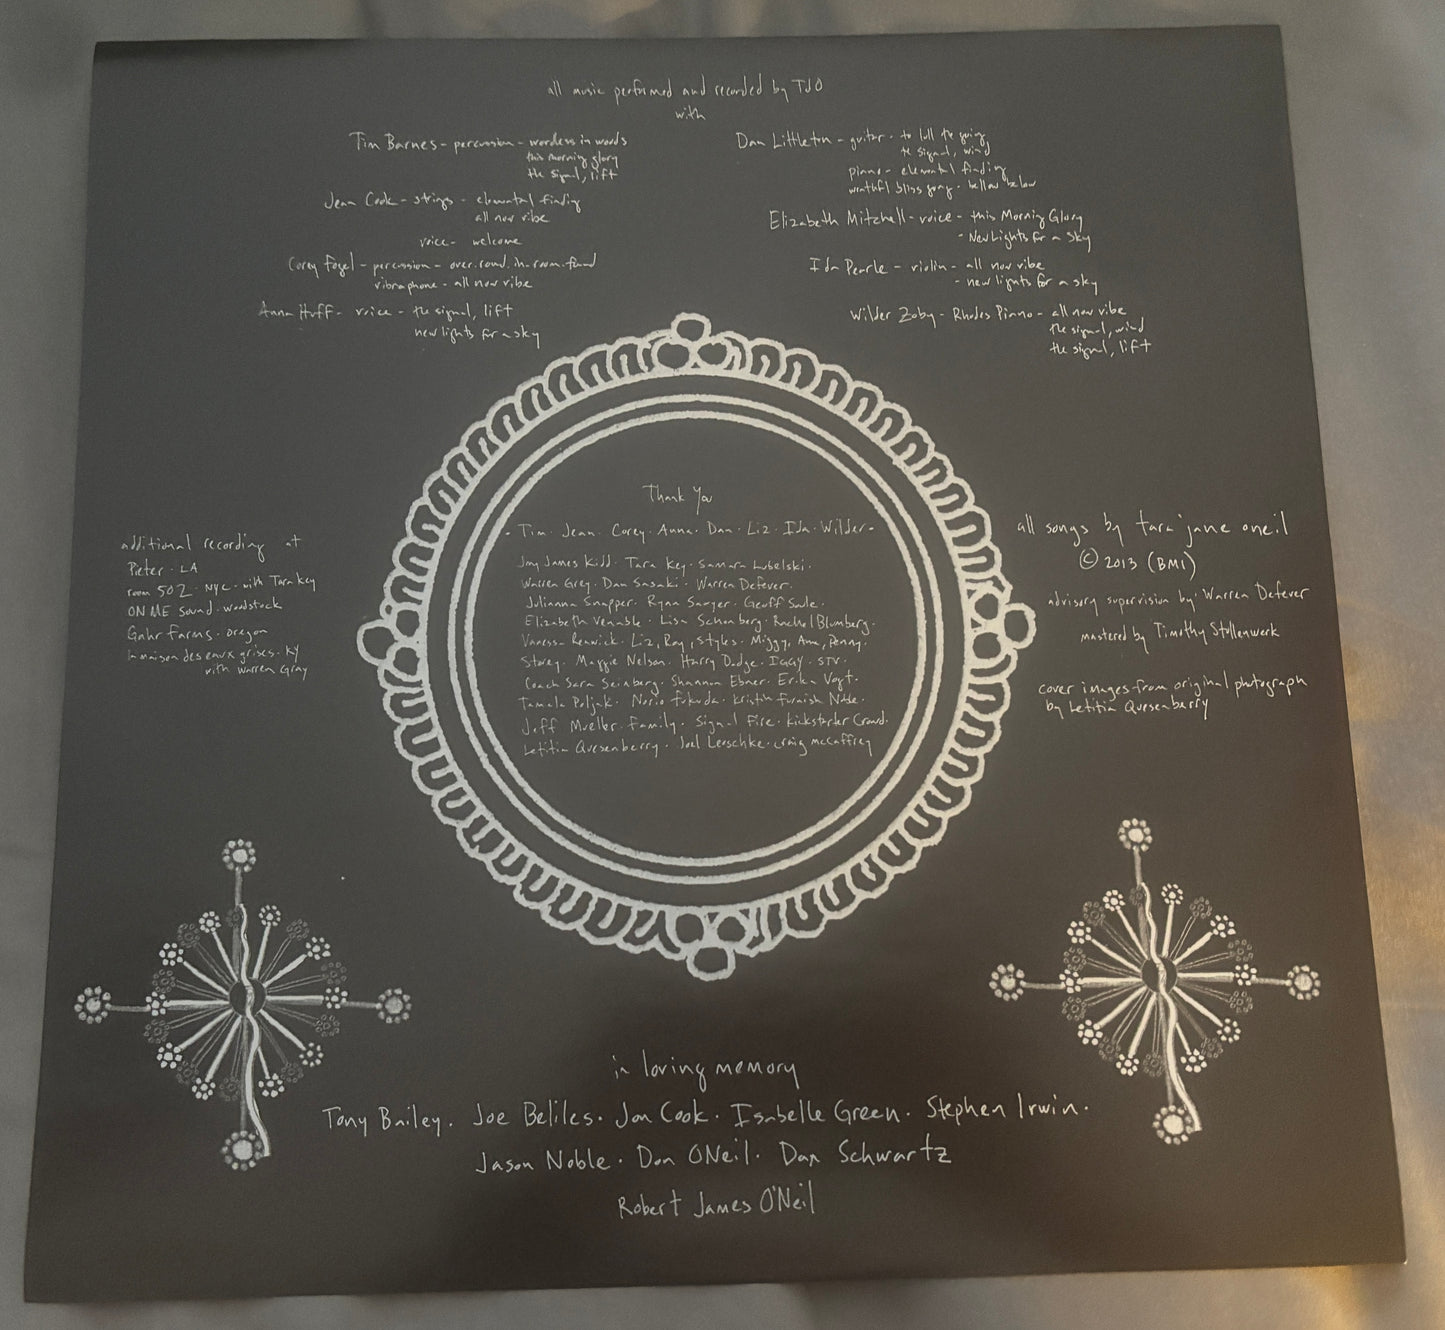 all music performed and recorded by TJO
with
Tim Barnes - percussion - wordless in woods
this morning glory
the signal, lift
Jean Cook - strings - elemental finding
all now vibe
voice - welcome
Corey Fogel - percussion - over. round. in a room. found
vibraphone - all now vibe
Anna Huff - voice - the signal, lift
new lights for a sky
Dan Littleton - guitar - to lull the going
the signal, wind
piano - elemental finding
wrathful bliss song - bellow below
Elizabeth Mitchell - voice - this Morning Glory
- New Lights for a Sky
Ida Pearle - violin - all now vibe
- new lights for a sky
Wilder Zoby - Rhodes Piano - all now vibe
the signal, wind
the signal, lift
Thank You
- Tim · Jean · Corey · Anna · Dan · Liz · Ida · Wilder -
Jay James Kidd · Tara Key · Samara Lubelski ·
Warren Grey · Dan Sasaki · Warren Defever ·
Julianna Snapper · Ryan Sawyer · Geoff Soule ·
Elizabeth Venable · Lisa Schonberg · Rachel Blumberg ·
Vanessa Renwick · Liz, Ray, Styles · Miggy, Ann, Penny
Storey · Maggie Nelson · Harry Dodge · IGGY · STV ·
Coach Sara Seinberg · Shannon Ebner · Erika Vogt ·
Tamala Poljak · Norio Fukuda · Kristin Furnish Noble ·
Jeff Mueller · Family · Signal Fire · Kickstarter Crowd ·
Letitia Quesenberry · Joel Leoschke · craig mccaffrey
additional recording at
Pieter · LA
room 502 · NYC · with Tara Key
ON ME Sound · Woodstock
Gahr Farms · oregon
la maison des eaux grises · KY
with Warren Gray
all songs by tara jane oneil
© 2013 (BMI)
advisory supervision by Warren Defever
mastered by Timothy Stollenwerk
cover images from original photograph
by Letitia Quesenberry
in loving memory
Tony Bailey · Joe Beliles · Jon Cook · Isabelle Green · Stephen Irwin ·
Jason Noble · Don ONeil · Dan Schwartz
Robert James O'Neil